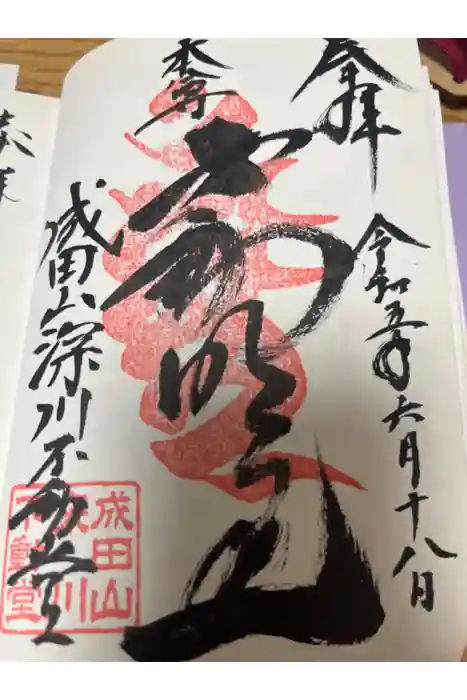 奉拝
令和五年六月十八日
本尊
不動明王
成田山深川不動堂
成田山
深川
不動堂
奉拝